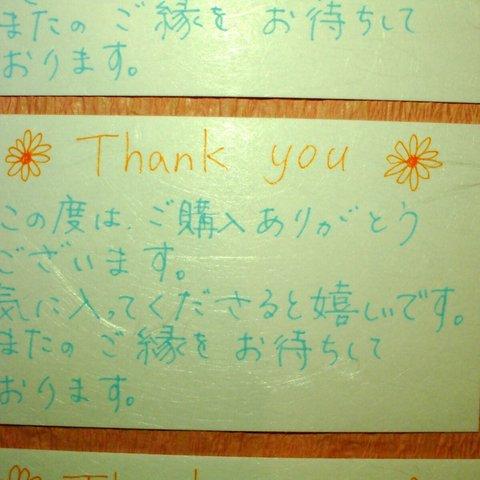 またの ご縁を お待ちして
おります。
Thank you
この度は、ご購入ありがとう
ございます。
気に入ってくださると嬉しいです。
またの ご縁を お待ちして
おります。